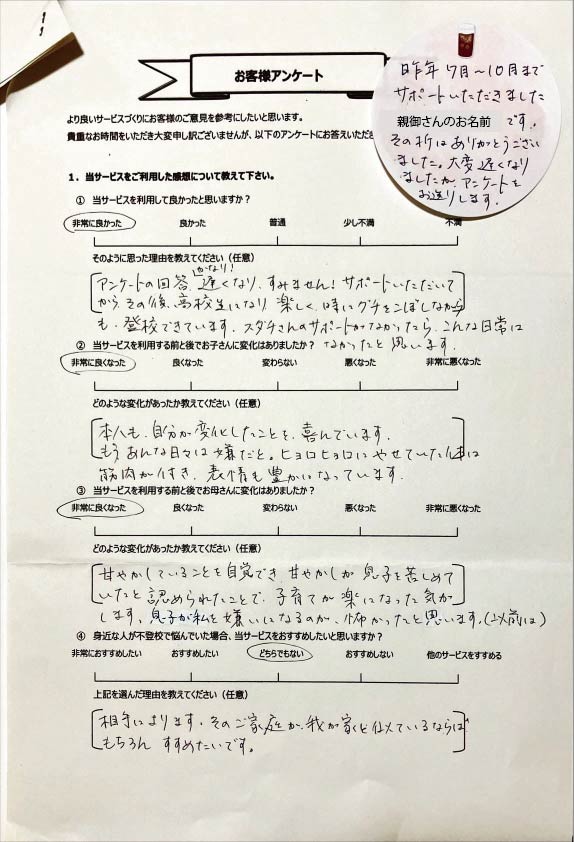 昨年7月〜10月まで
サポートいただきました
親御さんのお名前 です。
その折はありがとうござい
ました。大変遅くなり
ましたが、アンケートを
お送りします。
お客様アンケート
より良いサービスづくりにお客様のご意見を参考にしたいと思います。
貴重なお時間をいただき大変申し訳ございませんが、以下のアンケートにお答えいただ
1．当サービスをご利用した感想について教えて下さい。
① 当サービスを利用して良かったと思いますか？
非常に良かった 良かった 普通 少し不満 不満
そのように思った理由を教えてください（任意）
かなり！
アンケートの回答、遅くなり、すみません！サポートいただいて
から、その後、高校生になり、楽しく、時にグチをこぼしながら
も、登校できています。スダチさんのサポートがなかったら、こんな日常は
なかったと思います。
② 当サービスを利用する前と後でお子さんに変化はありましたか？
非常に良くなった 良くなった 変わらない 悪くなった 非常に悪くなった
どのような変化があったか教えてください（任意）
本人も、自分が変化したことを、喜んでいます。
もうあんな日々は嫌だと。ヒョロヒョロにやせていた体に
筋肉が付き、表情も豊かになっています。
③ 当サービスを利用する前と後でお母さんに変化はありましたか？
非常に良くなった 良くなった 変わらない 悪くなった 非常に悪くなった
どのような変化があったか教えてください（任意）
甘やかしていることを自覚でき、甘やかしが息子を苦しめて
いたと認められたことで、子育てが楽になった気が
します。息子が私を嫌いになるのが、怖かったと思います。（以前は）
④ 身近な人が不登校で悩んでいた場合、当サービスをおすすめしたいと思いますか？
非常におすすめしたい おすすめしたい どちらでもない おすすめしない 他のサービスをすすめる
上記を選んだ理由を教えてください（任意）
相手によります。そのご家庭が、我が家と似ているならば
もちろん すすめたいです。